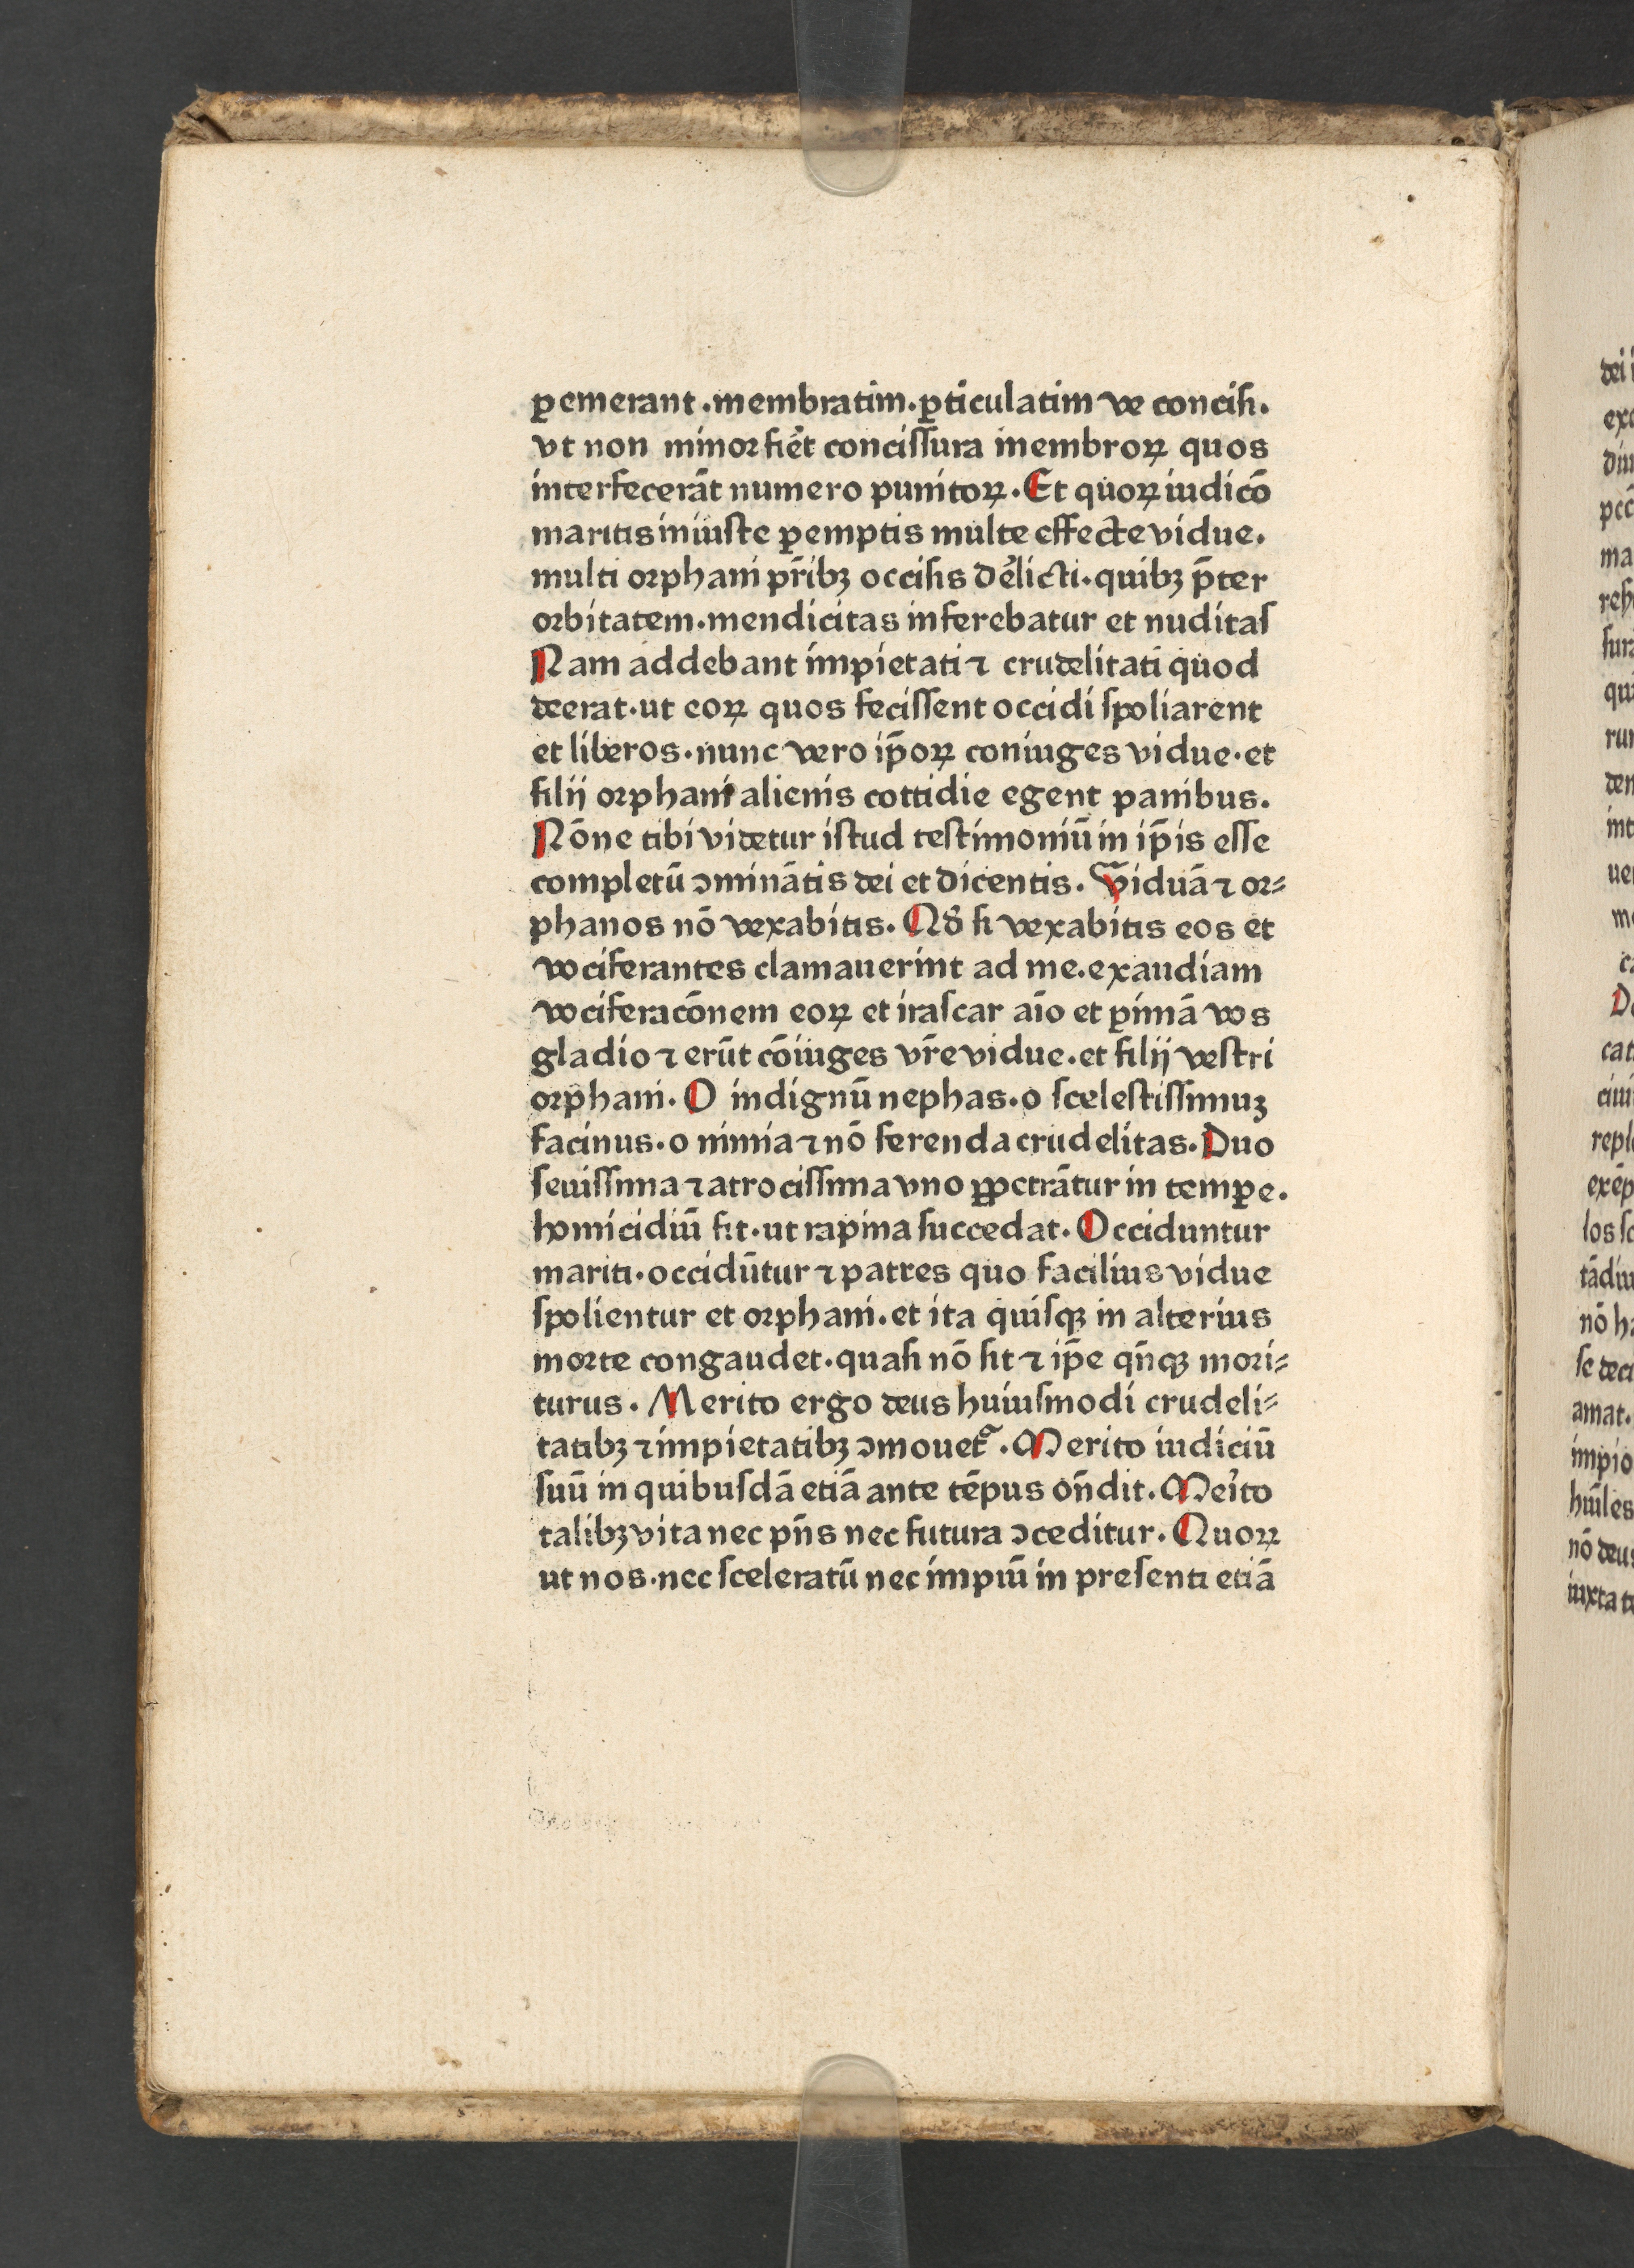 ꝑemerant .membratim.ꝑticulatim ve conciſi.
vt non minor fiẽt conciſſura membroꝝ quos
interfecerãt numero punitoꝝ. Et quoꝝ iudicõ
maritis iniuſte ꝑemptis multe effecte vidue.
multi orphani pr̃ibꝫ occiſis de̾licti. quibꝫ p̃ter
orbitatem.mendicitas inferebatur et nuditaſ
Nam addebant impietati ⁊ crudelitati quod
deerat.ut eoꝝ quos feciſſent occidi ſpoliarent
et liberos.nunc vero ip̃oꝝ coniuges vidue.et
filij orphani alienis cottidie egent panibus.
Nõne tibi videtur iſtud teſtimoniũ in ip̃is eſſe
completũ ↄminãtis dei et dicentis. Viduã ⁊ or⸗
phanos nõ vexabitis. Qð ſi vexabitis eos et
vociferantes clamauerint ad me.exaudiam
vociferacõnem eoꝝ et iraſcar aĩo et ꝑimã vos
gladio ⁊ erũt cõiuges vr̃e vidue.et filij veſtri
orphani. O indignũ nephas.o ſceleſtiſſimuꝫ
facinus.o nimia ⁊ nõ ferenda crudelitas. Duo
ſeuiſſima ⁊ atrociſſima vno ꝑꝑetrãtur in tempe̲.
homicidiũ fit.ut rapina ſuccedat. Occiduntur
mariti.occidũtur ⁊ patres quo facilius vidue
ſpolientur et orphani.et ita quiſqꝫ in alterius
morte congaudet.quaſi nõ ſit ⁊ ip̃e qñqꝫ mori⸗
turus. Merito ergo deus huiuſmodi crudeli⸗
tatibꝫ ⁊ impietatibꝫ ↄmouet᷑. Merito iudiciũ
ſuũ in quibuſdã etiã ante tẽpus oñdit. Mei̾to
talibꝫ vita nec pñs nec futura ↄceditur. Quoꝝ
ut nos.nec ſceleratũ nec impiũ in preſenti etiã